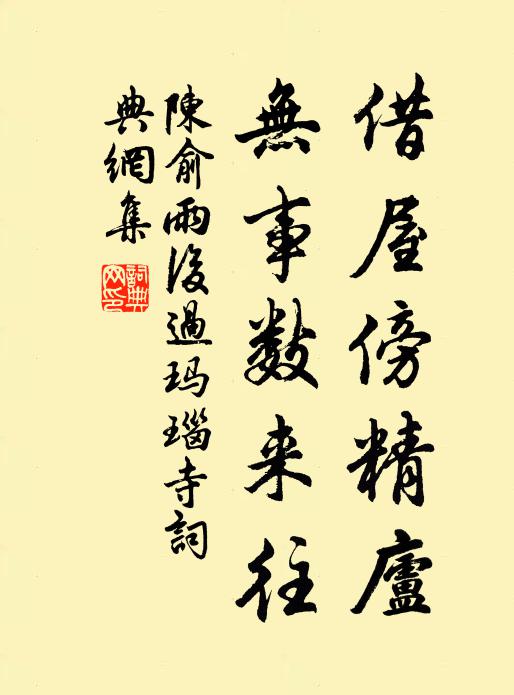 借屋傍精廬
無事数来往
陳俞雨後過玛瑙寺詞
典網集
詞典网印